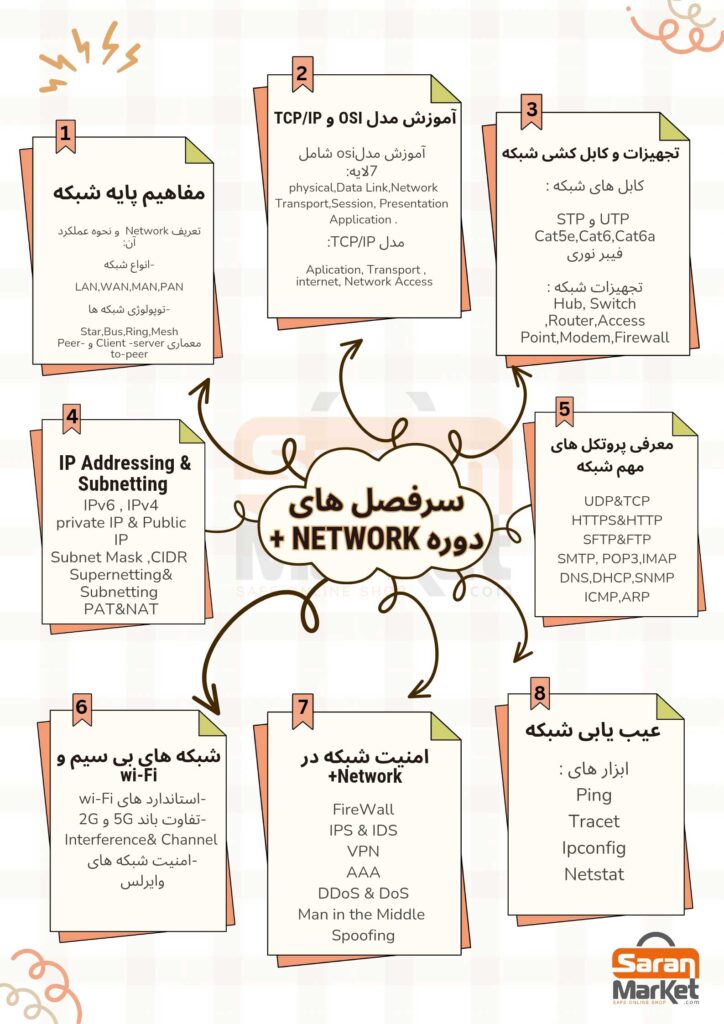 1
مفاهیم پایه شبکه
تعریف Network و نحوه عملکرد
آن:
-انواع شبکه
LAN,WAN,MAN,PAN
-توپولوژی شبکه ها
Star,Bus,Ring,Mesh
معماری Client -server و Peer-
to-peer
2
آموزش مدل OSI و TCP/IP
آموزش مدلosi شامل
7لایه:
physical,Data Link,Network
Transport,Session, Presentation
Application .
مدل TCP/IP:
Aplication, Transport ,
internet, Network Access
3
تجهیزات و کابل کشی شبکه
کابل های شبکه :
UTP و STP
Cat5e,Cat6,Cat6a
فیبر نوری
تجهیزات شبکه :
Hub, Switch
,Router,Access
Point,Modem,Firewall
4
IP Addressing &
Subnetting
IPv6 , IPv4
private IP & Public
IP
Subnet Mask ,CIDR
Supernetting&
Subnetting
PAT&NAT
سرفصل های
دوره NETWORK +
5
معرفی پروتکل های
مهم شبکه
UDP&TCP
HTTPS&HTTP
SFTP&FTP
SMTP, POP3,IMAP
DNS,DHCP,SNMP
ICMP,ARP
6
شبکه های بی سیم و
wi-Fi
-استاندارد های wi-Fi
-تفاوت باند 5G و 2G
Interference& Channel
-امنیت شبکه های
وایرلس
7
امنیت شبکه در
Network+
FireWall
IPS & IDS
VPN
AAA
DDoS & DoS
Man in the Middle
Spoofing
8
عیب یابی شبکه
ابزار های :
Ping
Tracet
Ipconfig
Netstat
Saran
Market
SAFE ONLINE SHOP .com